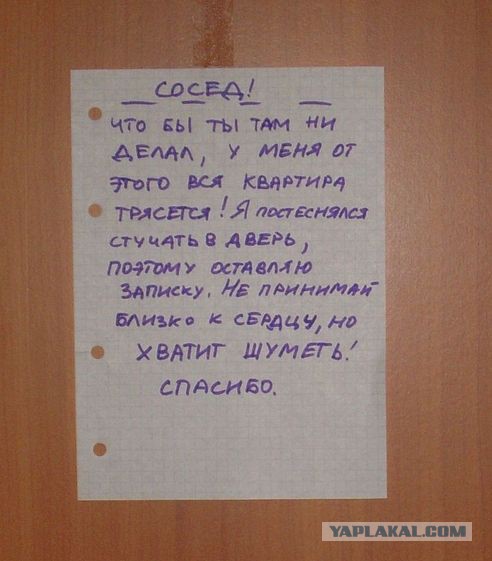 СОСЕД!
ЧТО БЫ ТЫ ТАМ НИ
ДЕЛАЛ, У МЕНЯ ОТ
ЭТОГО ВСЯ КВАРТИРА
ТРЯСЕТСЯ! Я ПОСТЕСНЯЛСЯ
СТУЧАТЬ В ДВЕРЬ,
ПОЭТОМУ ОСТАВЛЯЮ
ЗАПИСКУ. НЕ ПРИНИМАЙ
БЛИЗКО К СЕРДЦУ, НО
ХВАТИТ ШУМЕТЬ!
СПАСИБО.
YAPLAKAL.COM